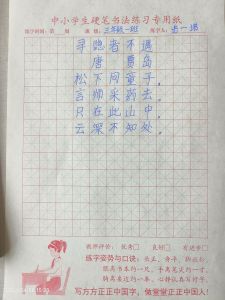 中小学生硬笔书法练习专用纸
练字时间：第 周 班级：三年级一班 练字人：
寻隐者不遇
唐 贾岛
松下问童子，
言师采药去。
只在此山中，
云深不知处。
教师评价：优秀□ 良好□ 有进步□
练字姿势与口诀：头正、身平、脚放松
眼离书本约一尺，手离笔尖约一寸，
胸离桌边约一拳，心静认真写好字。
写方方正正中国字，做堂堂正正中国人！